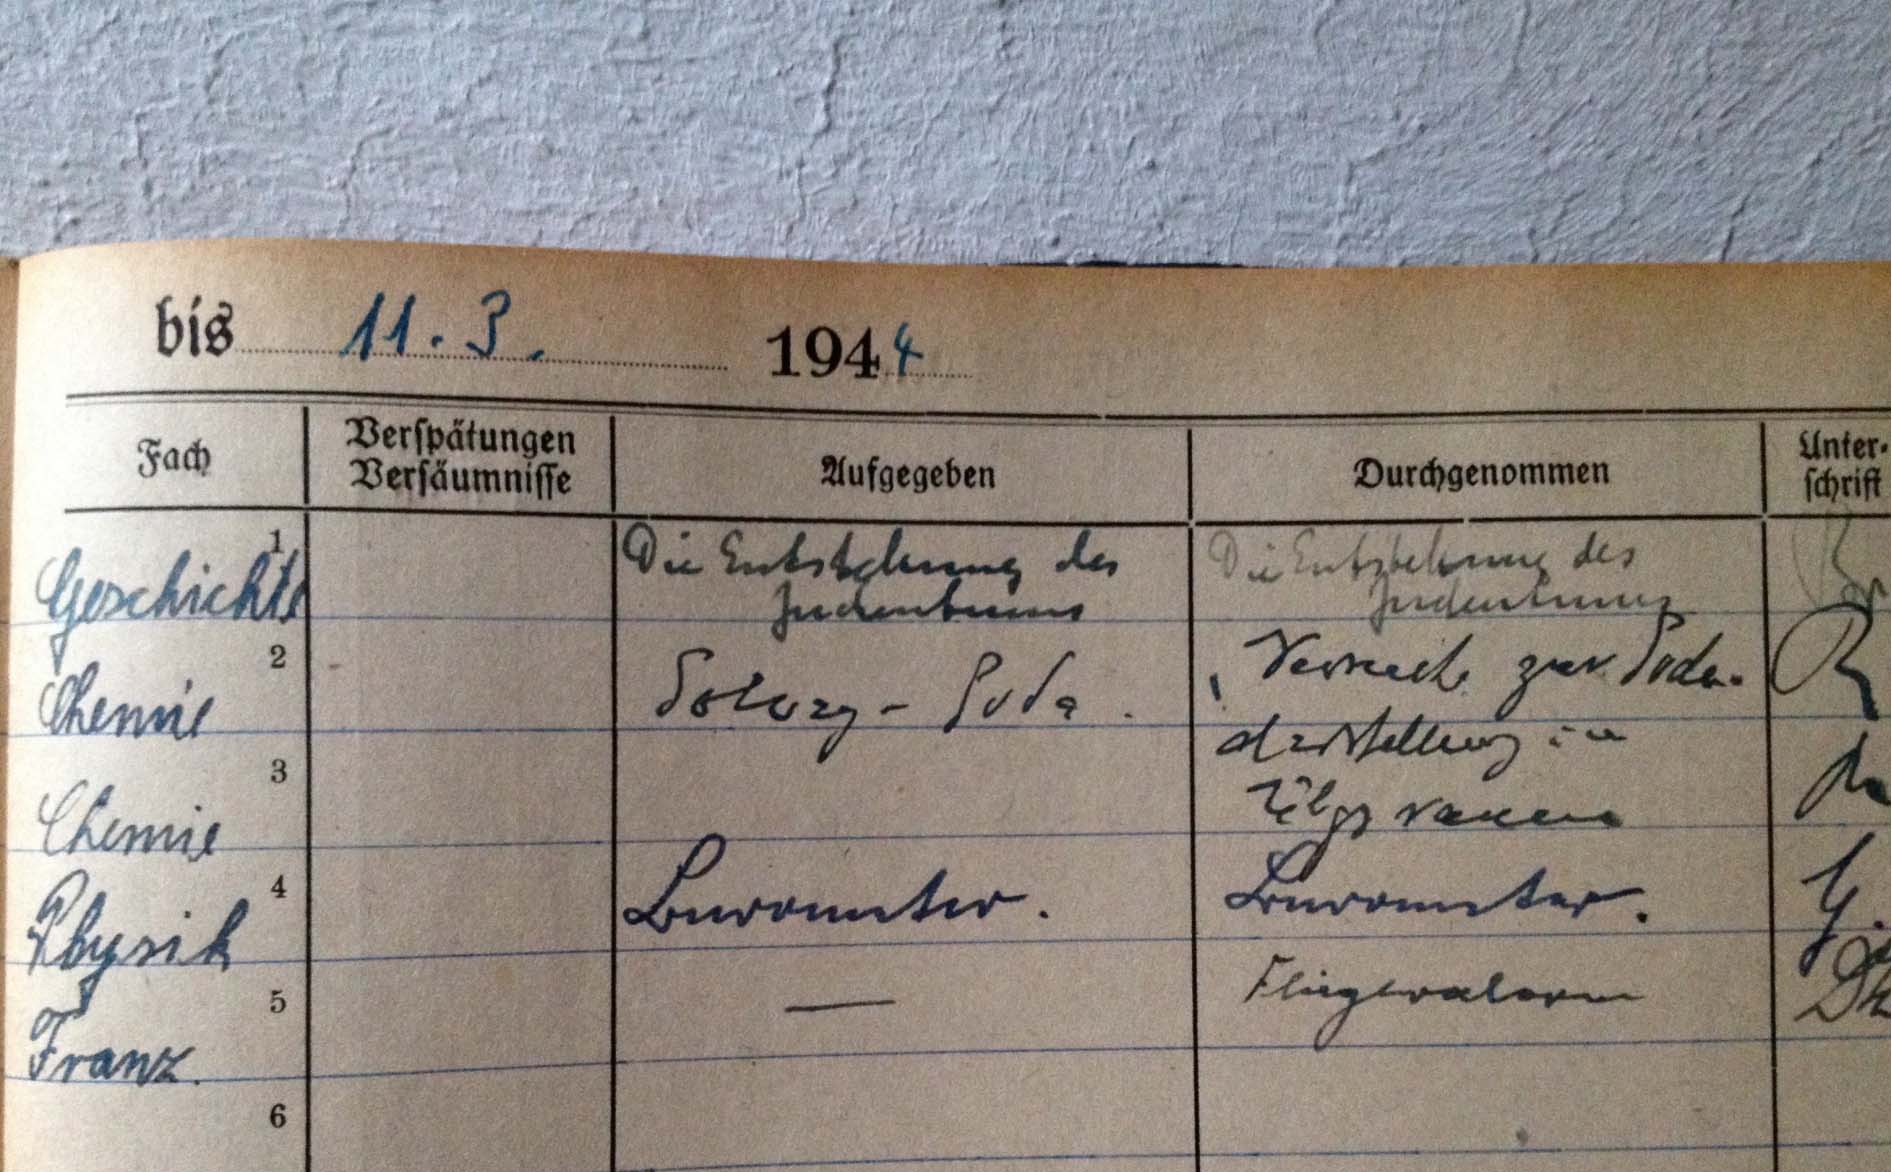 bis 11. 3. 1944
Fach
Verspätungen
Versäumnisse
Aufgegeben
Durchgenommen
Unter-
schrift
1
Geschichte
Die Entstehung des
Judentums
Die Entstehung des
Judentums
2
Chemie
Solvay - Soda.
Versuche zur Soda-
darstellung in
3
Chemie
4
Physik
Barometer.
Barometer.
5
Franz.
—
Fliegeralarm
6